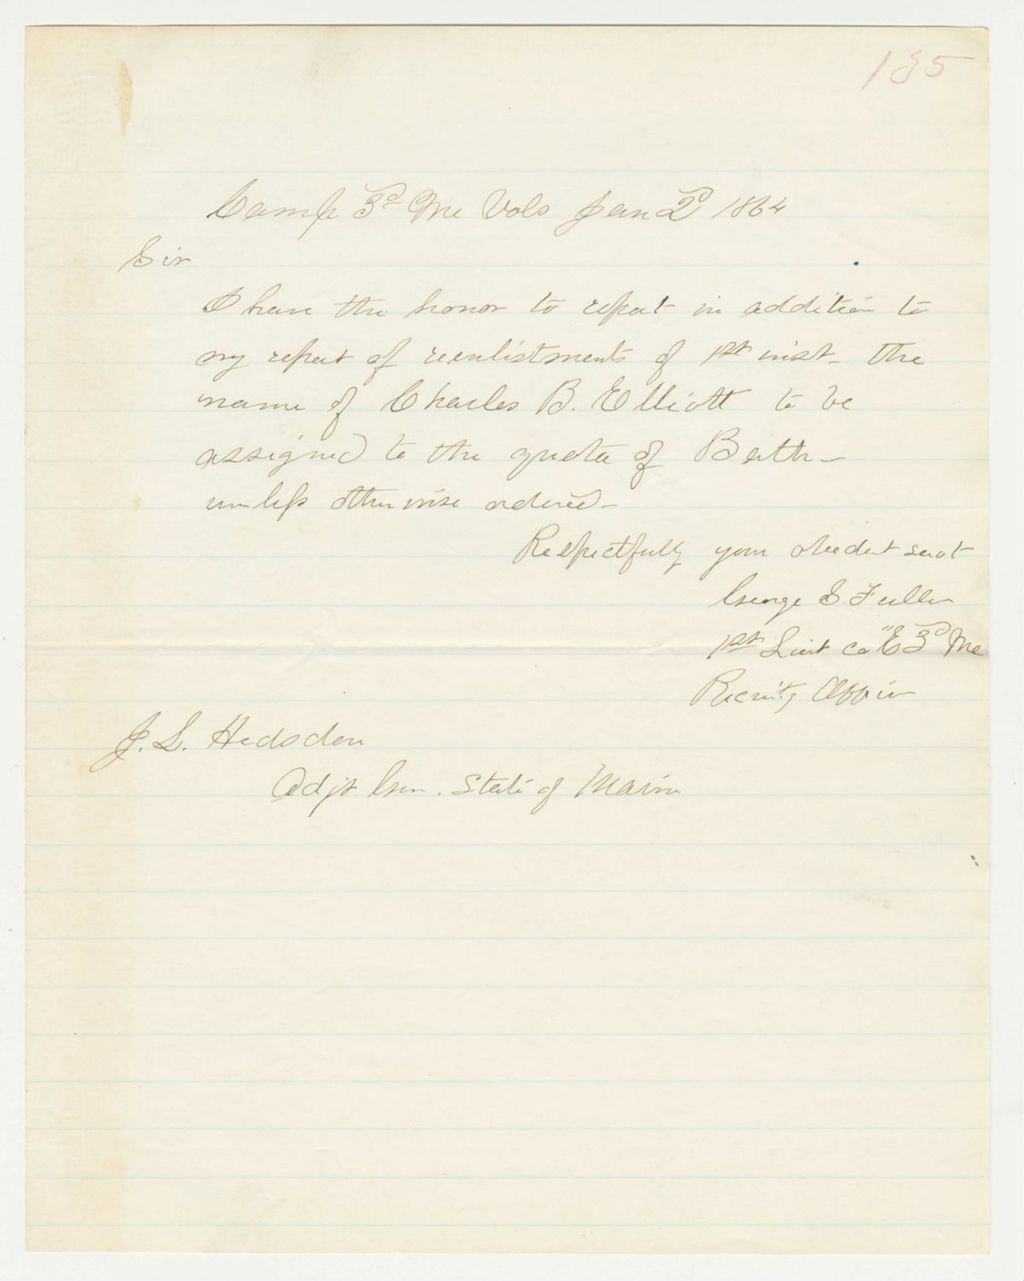 185
Camp 3d Me Vols Jan 2d 1864
Sir
I have the honor to report in addition to
my report of reenlistments of 1st inst- the
name of Charles B. Elliott to be
assigned to the quota of Bath-
unless otherwise ordered-
Respectfully your obedient servt
George E. Fuller
1st Lieut Co "E 3d Me
Recruitg Officer
J. L. Hodsdon
Adjt Gen. State of Maine